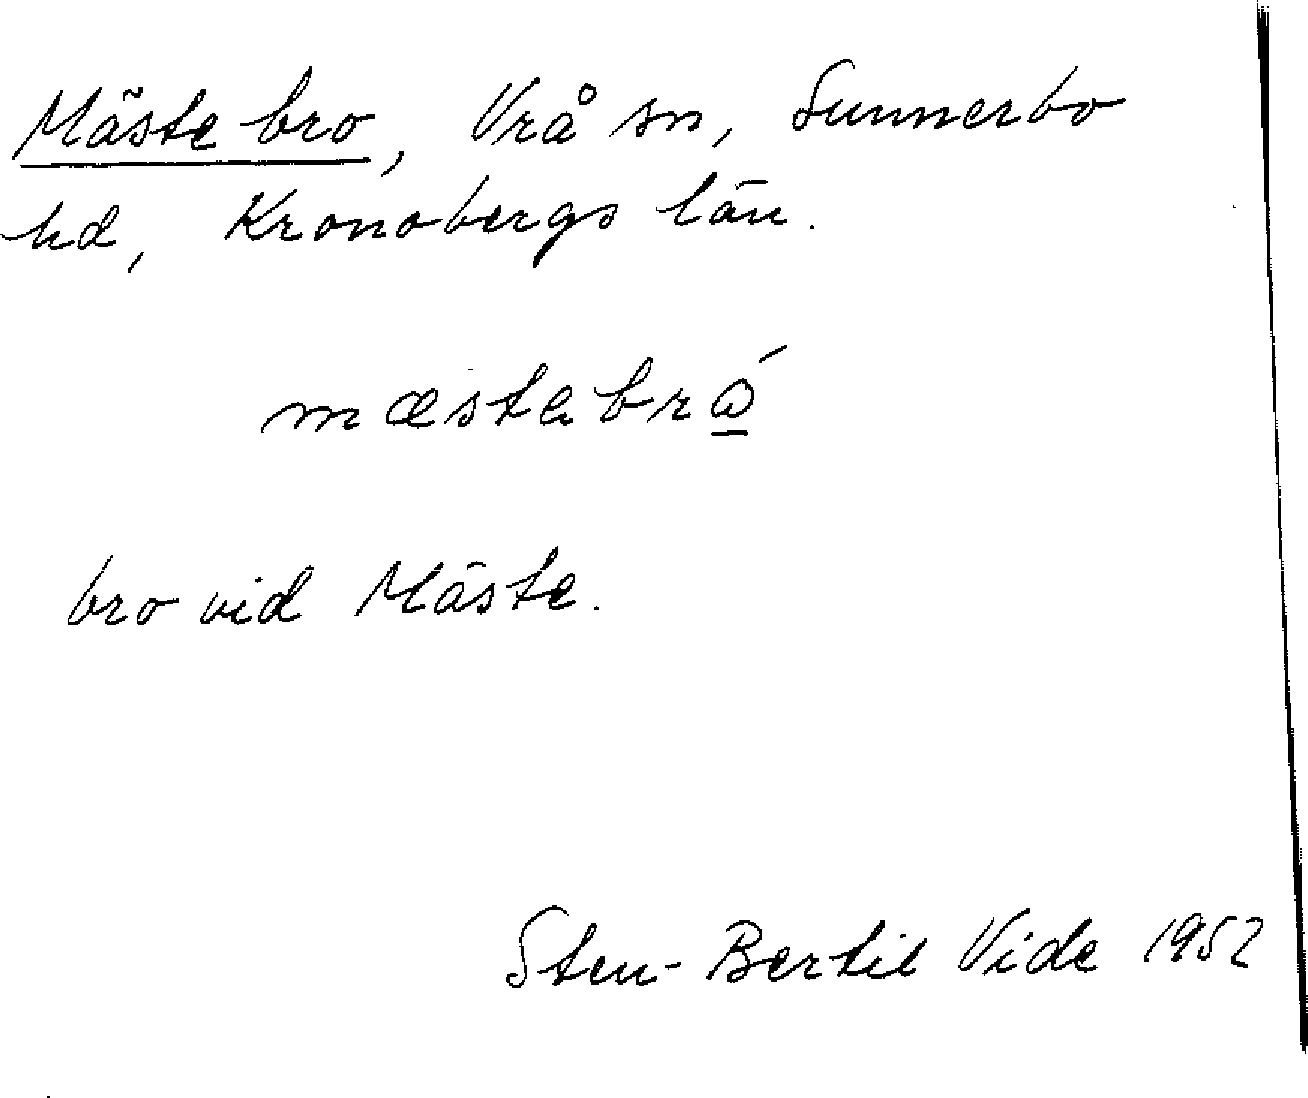 Mäste bro, Vrå sn, Sunnerbo
hd, Kronobergs län.
mæstabrǫ́
bro vid Mäste.
Sten-Bertil Vide 1952